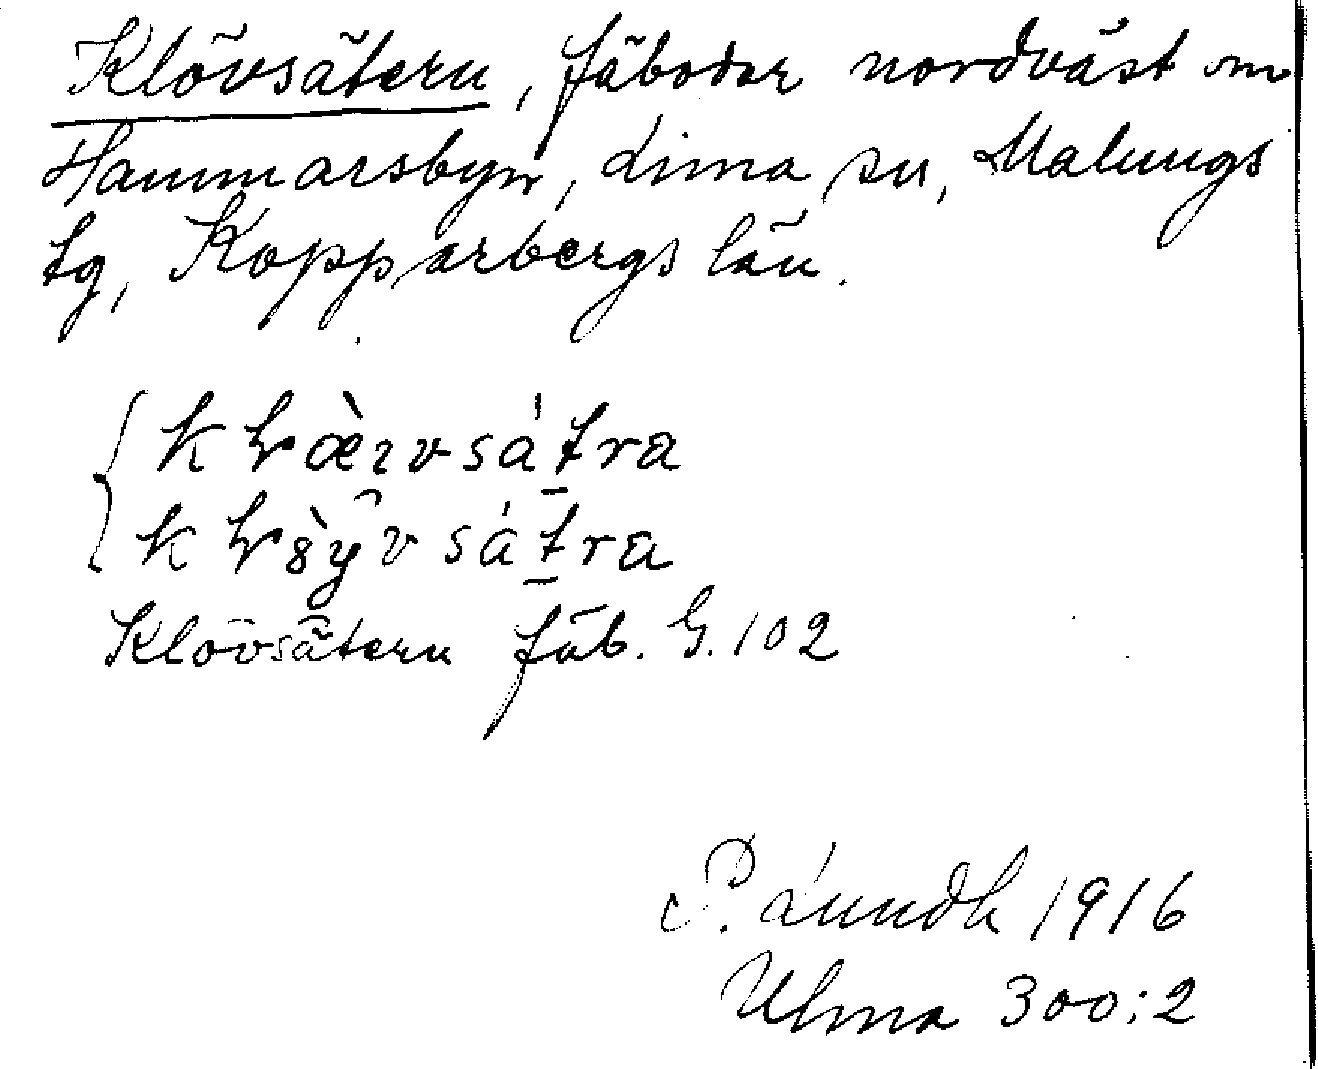 Klövsätern, fäbodar nordväst om
Hammarsbyn, Lima sn, Malungs
tg, Kopparbergs län.
Klövsätern fäb. G. 102
P. Lundh 1916
Ulma 300:2